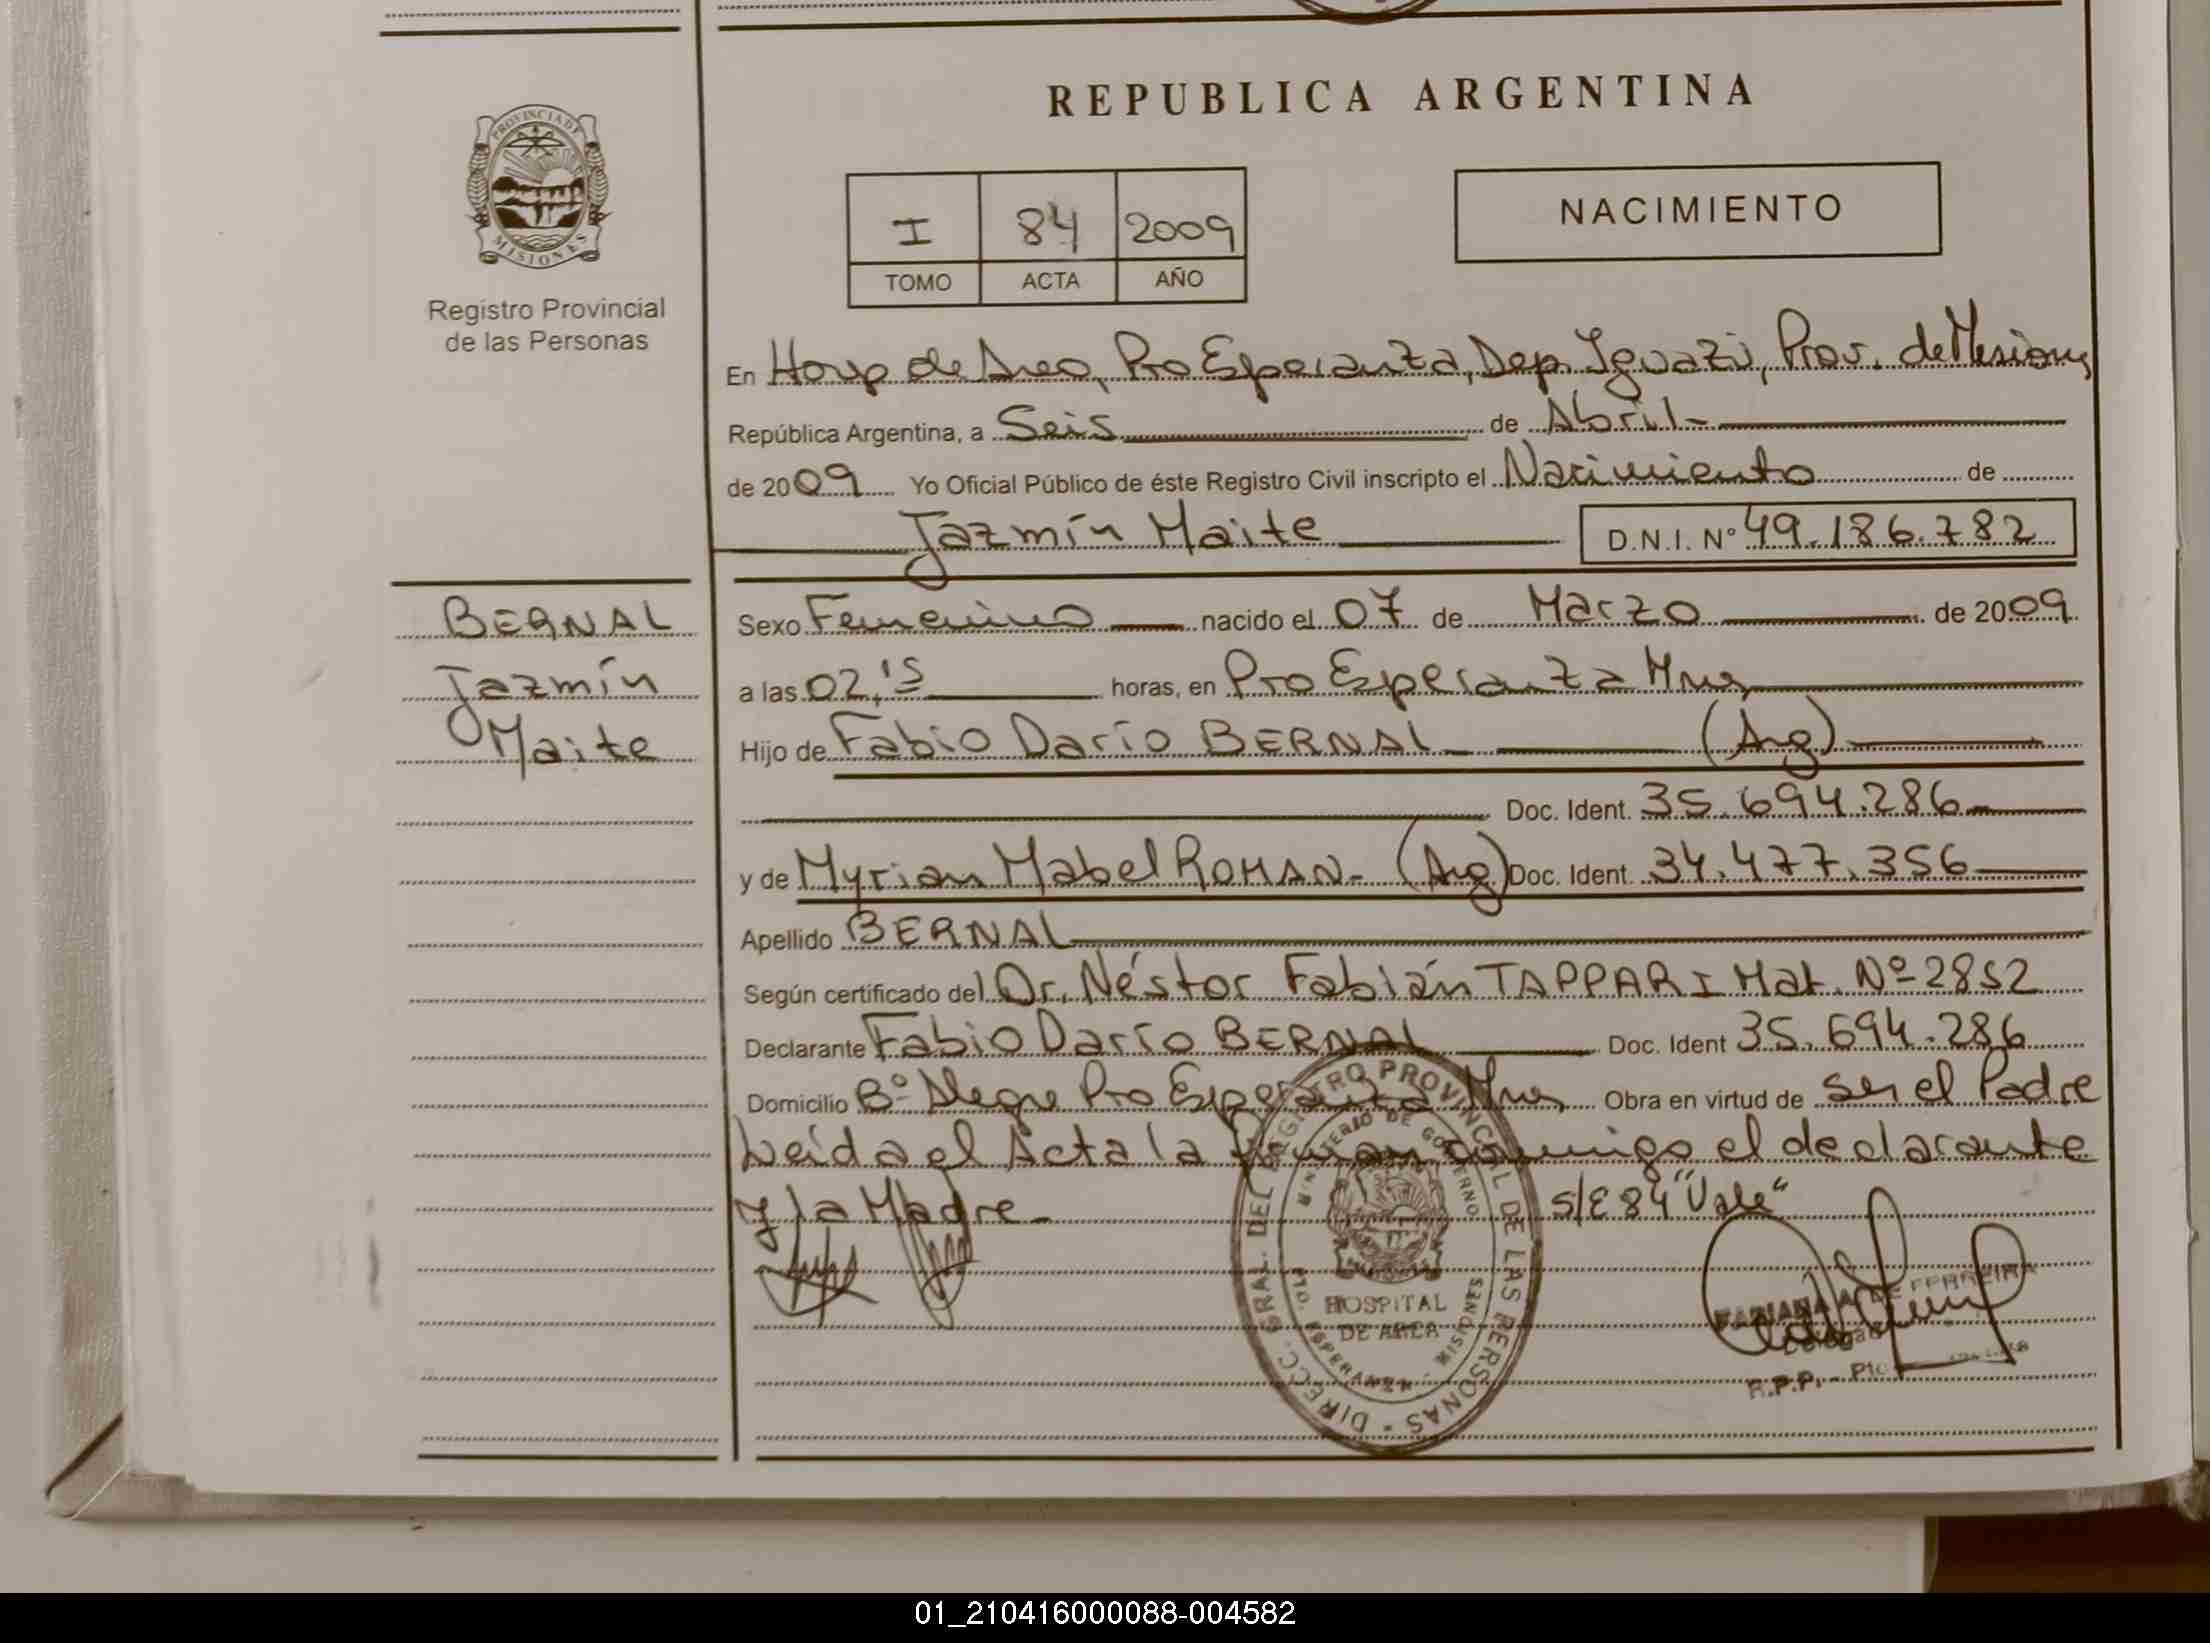 REPUBLICA ARGENTINA
PROVINCIA DE
MISIONES
Registro Provincial
de las Personas
I 84 2009
TOMO ACTA AÑO
NACIMIENTO
En Hosp de Area, Pto Esperanza, Dep. Iguazú, Prov. de Misiones
República Argentina, a Seis de Abril-
de 2009 Yo Oficial Público de éste Registro Civil inscripto el Nacimiento de
Jazmín Maite D.N.I. Nº 49.186.782
BERNAL
Jazmín
Maite
Sexo Femenino nacido el 07 de Marzo de 2009
a las 02,15 horas, en Pto Esperanza Mnes
Hijo de Fabio Darío BERNAL (Arg)
Doc. Ident. 35.694.286
y de Myrian Mabel ROMAN- (Arg) Doc. Ident. 34.477.356
Apellido BERNAL
Según certificado del Dr. Néstor Fabián TAPPARI Mat. Nº 2852
Declarante Fabio Darío BERNAL Doc. Ident 35.694.286
Domicilio Bº Alegre Pto Esperanza Mnes Obra en virtud de ser el Padre
Leída el Acta la firman conmigo el declarante
y la Madre- S/E 84 "Vale"
DIRECC. GRAL. DEL REGISTRO PROVINCIAL DE LAS PERSONAS
MINISTERIO DE GOBIERNO
HOSPITAL
DE AREA
PTO. ESPERANZA - MISIONES
FABIANA A. DE FERREIRA
R.P.P. - Pto
01_210416000088-004582